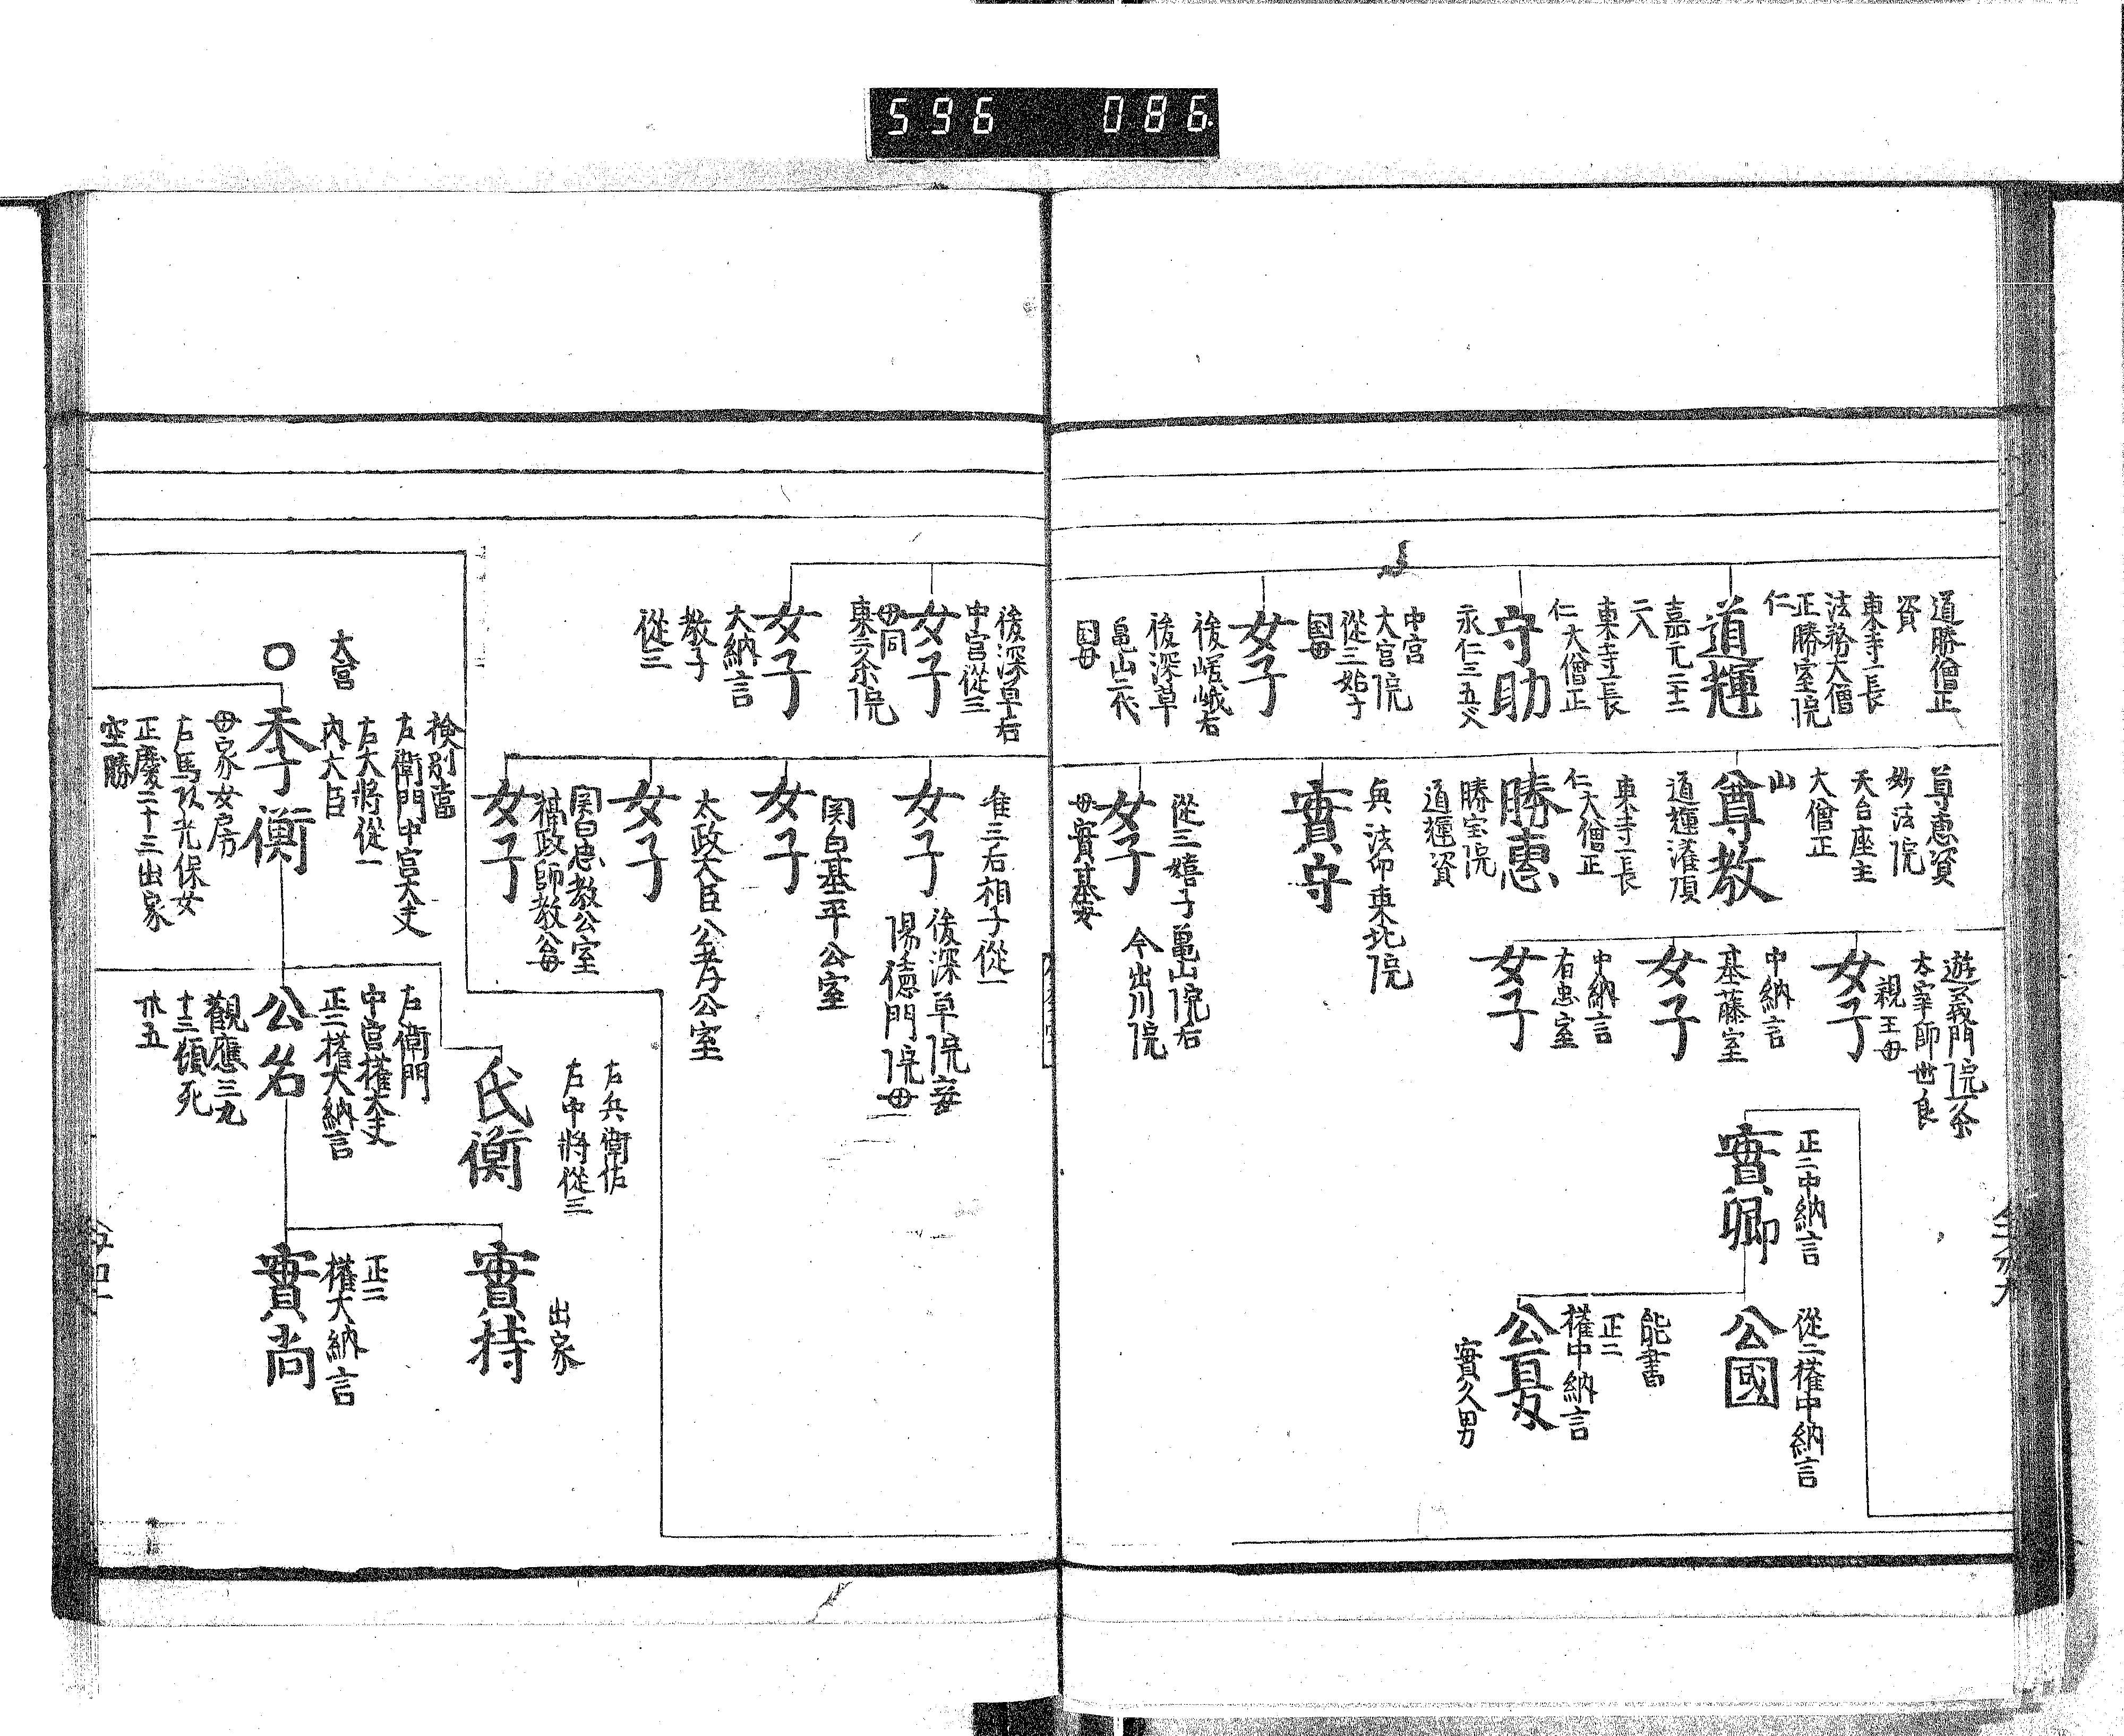 596 086
道勝僧正
資
東寺一長
法務大僧
正勝室院
仁
道輝
嘉元二十三
東寺一長
仁大僧正
守助
永仁三五
中宮
大宮院
從三姞子
国母
女子
後嵯峨右
後深草
亀山二代
国母
尊恵資
妙法院
天台座主
大僧正
山
尊教
道輝潅頂
東寺一長
仁大僧正
勝惠
勝宝院
道輝資
興法印東北院
實守
從三嬉子亀山院右
今出川院
女子
母實基女
遊義門院一条
太宰帥世良
親王母
女子
中納言
基藤室
女子
中納言
右忠室
女子
正二中納言
實卿
從二権中納言
公國
能書
正二
権中納言
公夏
實久男
後深草右
中宮從三
女子
母同
東二条院
女子
大納言
教子
從三
准三右相子從一
女子
後深草院妾
陽德門院母
関白基平公室
女子
太政大臣公孝公室
女子
関白忠教公室
攝政師教公母
女子
検別當
左衛門中宮大夫
右大将從一
内大臣
大宮
季衡
母家女房
左馬以光保女
正慶二十三出家
空勝
左兵衛佐
左中将從三
氏衡
左衛門
中宮権大夫
正二権大納言
公名
觀應三九
十三頓死
卅五
出家
實持
正二
権大納言
實尚